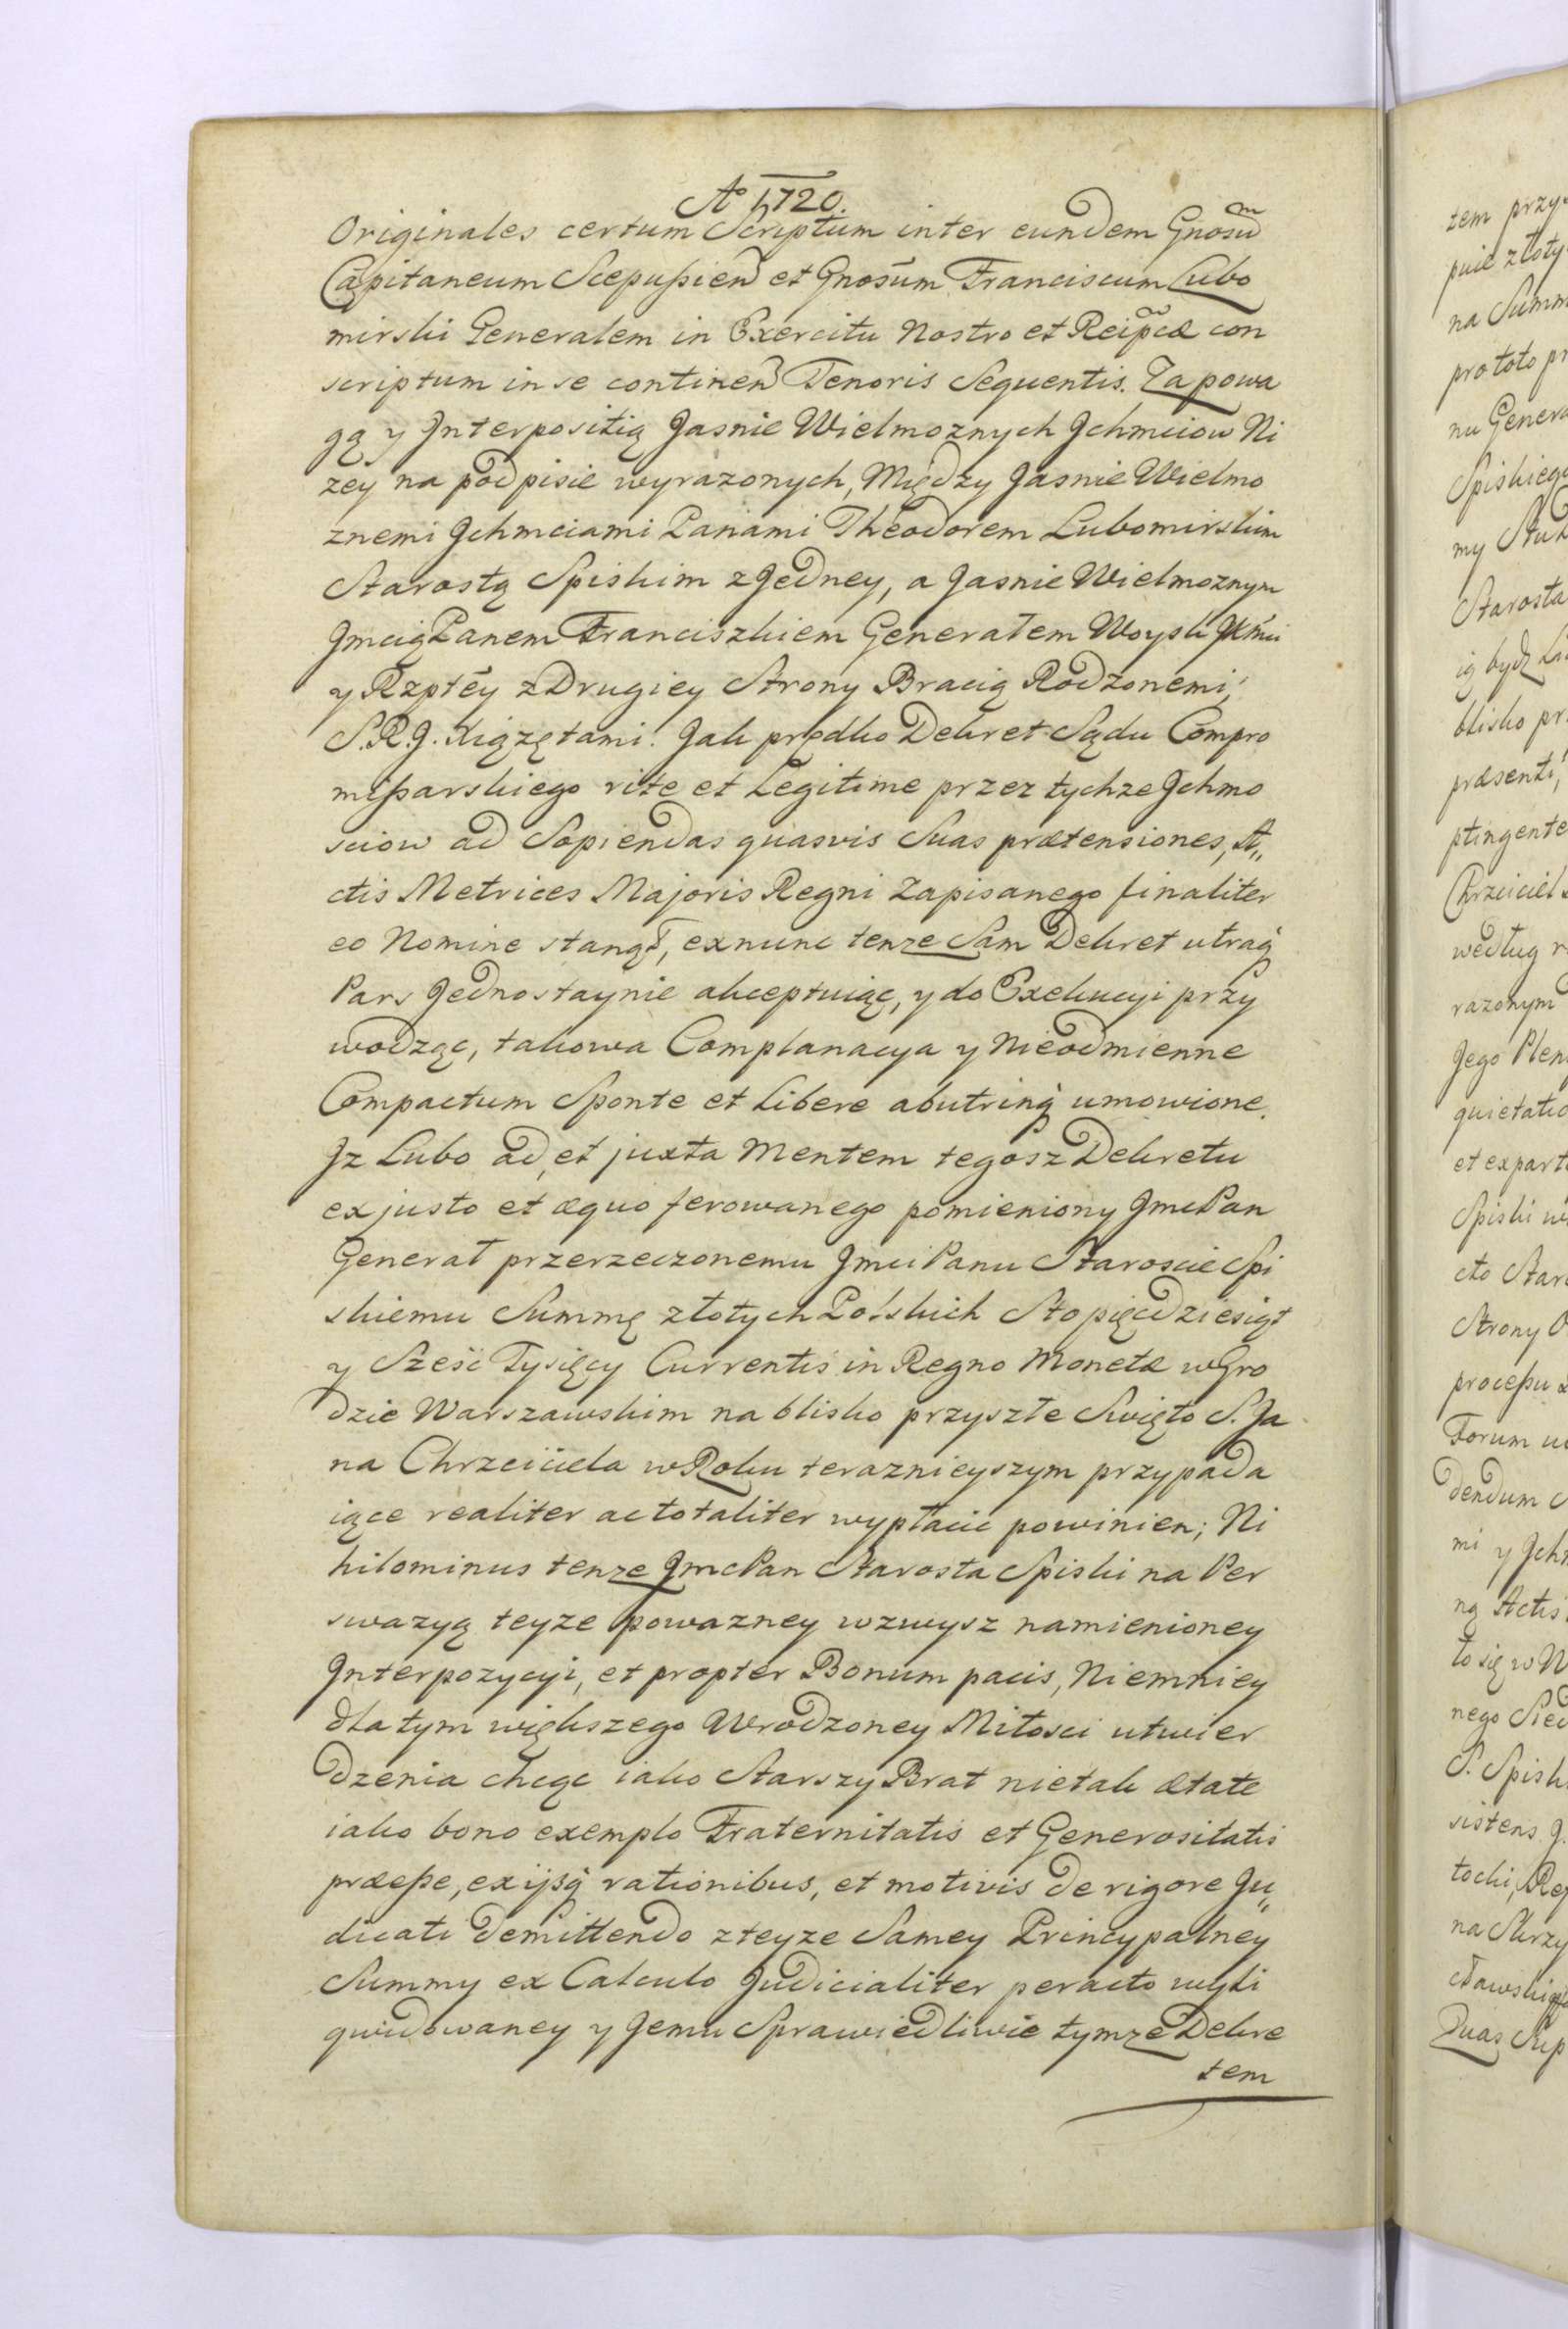 Aº 1720.
Originales certum Scriptum inter eundem Gnosũm
Capitaneum Scepußien et Gnosũm Franciscum Lubo
mirski Generalem in Exercitu Nostro et Reipcæ con
scriptum in se continen Tenoris Sequentis. Za powa
gą y Jnterpositią Jasnie Wielmoznych Jchmciow Ni
zey na podpisie wyrazonych, Między Jasnie Wielmo
znemi Jchmciami Panami Theodorem Lubomirskim
Starostą Spiskim z Jedney, a Jasnie Wielmoznym
Jmcią Panem Franciszkiem Generałem Woysk JKmci
y Rzptey z Drugiey Strony Bracią Rodzonemi,
S.R.J. Xiązętami. Jak prędko Dekret Sądu Compro
mißarskiego rite et Legitime przez tychze Jchmo
sciow ad Sopiendas quasvis Suas prætensiones, A„
ctis Metrices Majoris Regni Zapisanego finaliter
eo Nomine stanął, exnunc tenze Sam Dekret utraq
Pars Jednostaynie akceptuiąc, y do Exekucyi przy
wodząc, takowa Complanacya y Nieodmienne
Compactum Sponte et Libere abutrinq umowione.
Jz Lubo ad, et juxta Mentem tegosz Dekretu
ex justo et æquo ferowanego pomieniony Jmc Pan
Generał przerzeczonemu Jmci Panu Staroscie Spi
skiemu Summę złotych Polskich Sto pięcdziesiąt
y Sześć Tysięcy Currentis in Regno Monetæ w Gro
dzie Warszawskim na blisko przyszłe Swięto S. Ja
na Chrzciciela w Roku teraznieyszym przypada
iące realiter ac totaliter wypłacic powinien; Ni
hilominus tenze Jmc Pan Starosta Spiski na Per
swazyą teyze powazney wzwysz namienioney
Jnterpozycyi, et propter Bonum pacis, Niemniey
dla tym większego Wrodzoney Miłosci utwier
dzenia chcąc iako Starszy Brat nietak ætate
iako bono exemplo Fraternitatis et Generositatis
præeße, ex ijsq rationibus, et motivis de rigore Ju„
dicati demittendo z teyze Samey Principalney
Summy ex Calculo Judicialiter peracto wyli
quidowaney y Jemu Sprawiedliwie tymze Dekre
tem